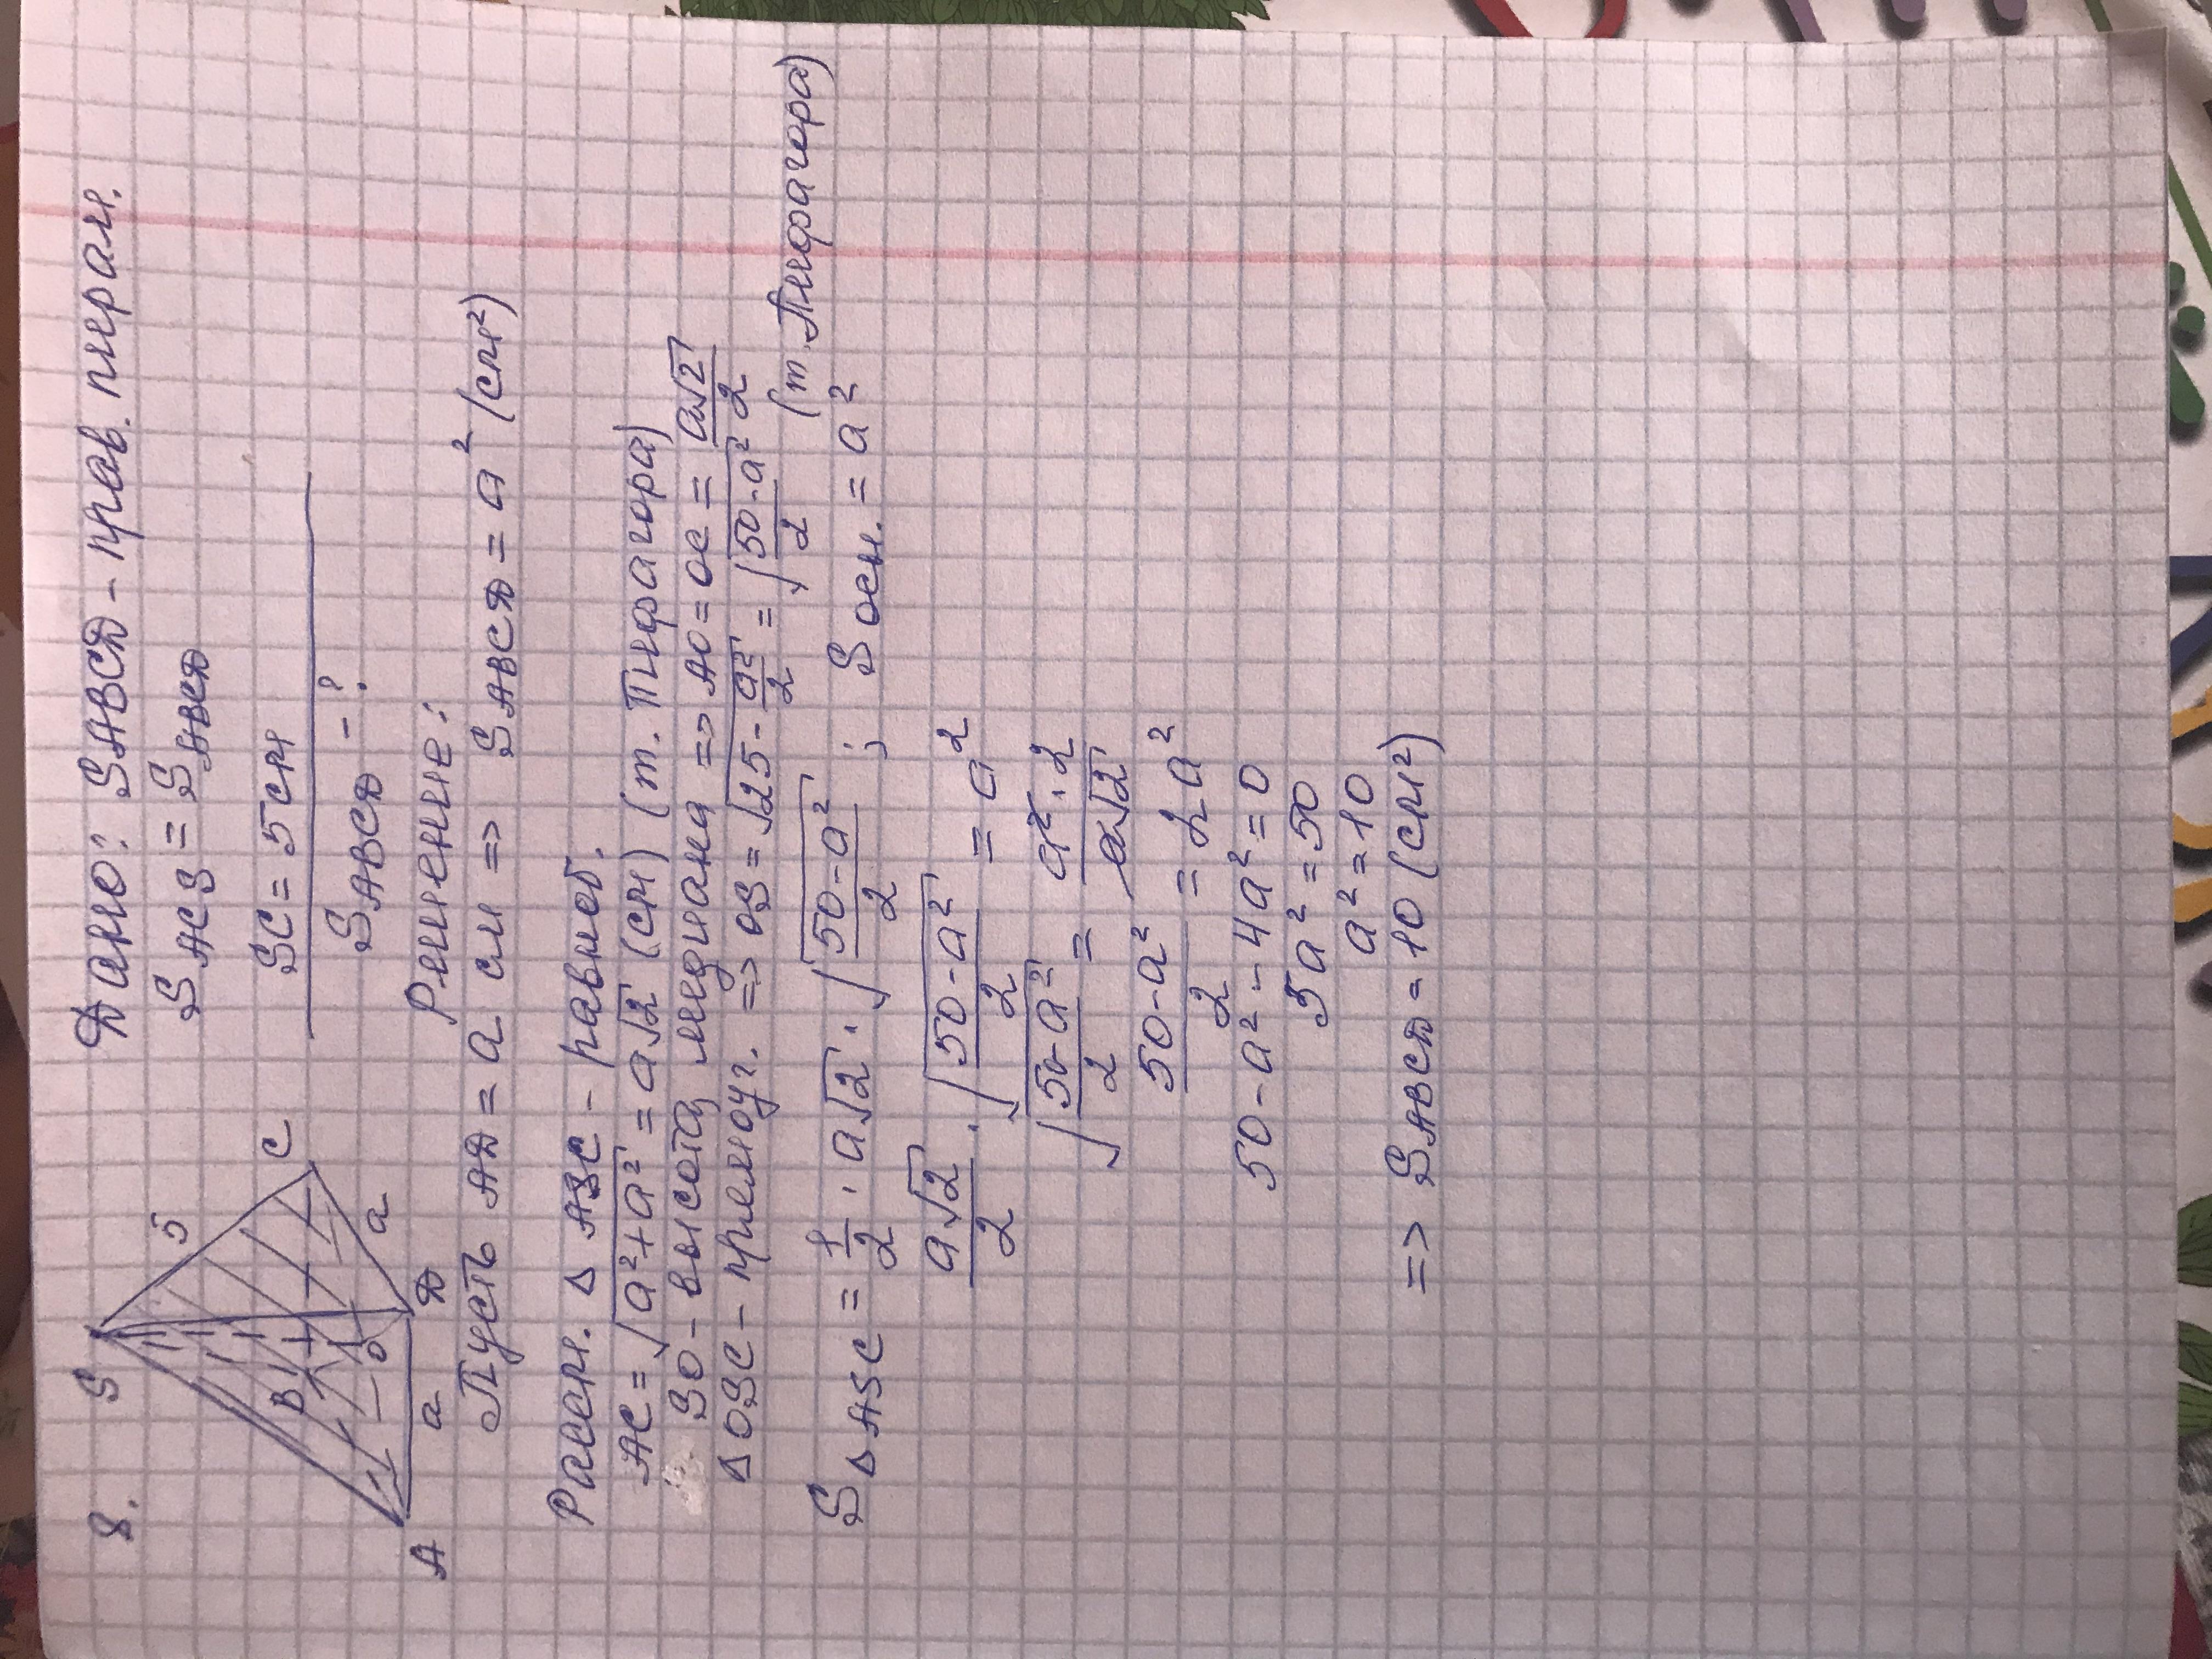 8.
Дано: SАВСД - прав. пирам.
S ACS = S АВСД
SC = 5 см
S АВСД - ?
S
5
C
B
O
a
A
a
Д
Решение:
Пусть АД = a см => S АВСД = a² (см²)
Рассм. Δ ASC - равноб.
AC = √(a²+a²) = a√2 (см) (т. Пифагора)
SO - высота, медиана => AO = OC = a√2/2
Δ OSC - прямоуг. => OS = √(25 - a²/2) = √((50-a²)/2) (т. Пифагора)
S Δ ASC = 1/2 · a√2 · √((50-a²)/2) ; S осн. = a²
a√2/2 · √((50-a²)/2) = a²
√((50-a²)/2) = a²·2/a√2
(50-a²)/2 = 2a²
50-a²-4a²=0
5a²=50
a²=10
=> S АВСД = 10 (см²)